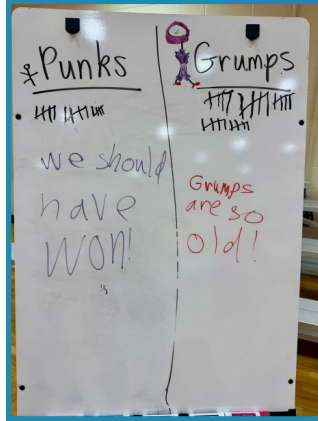 Punks
we should
have
WON!
Grumps
Grumps
are so
old!